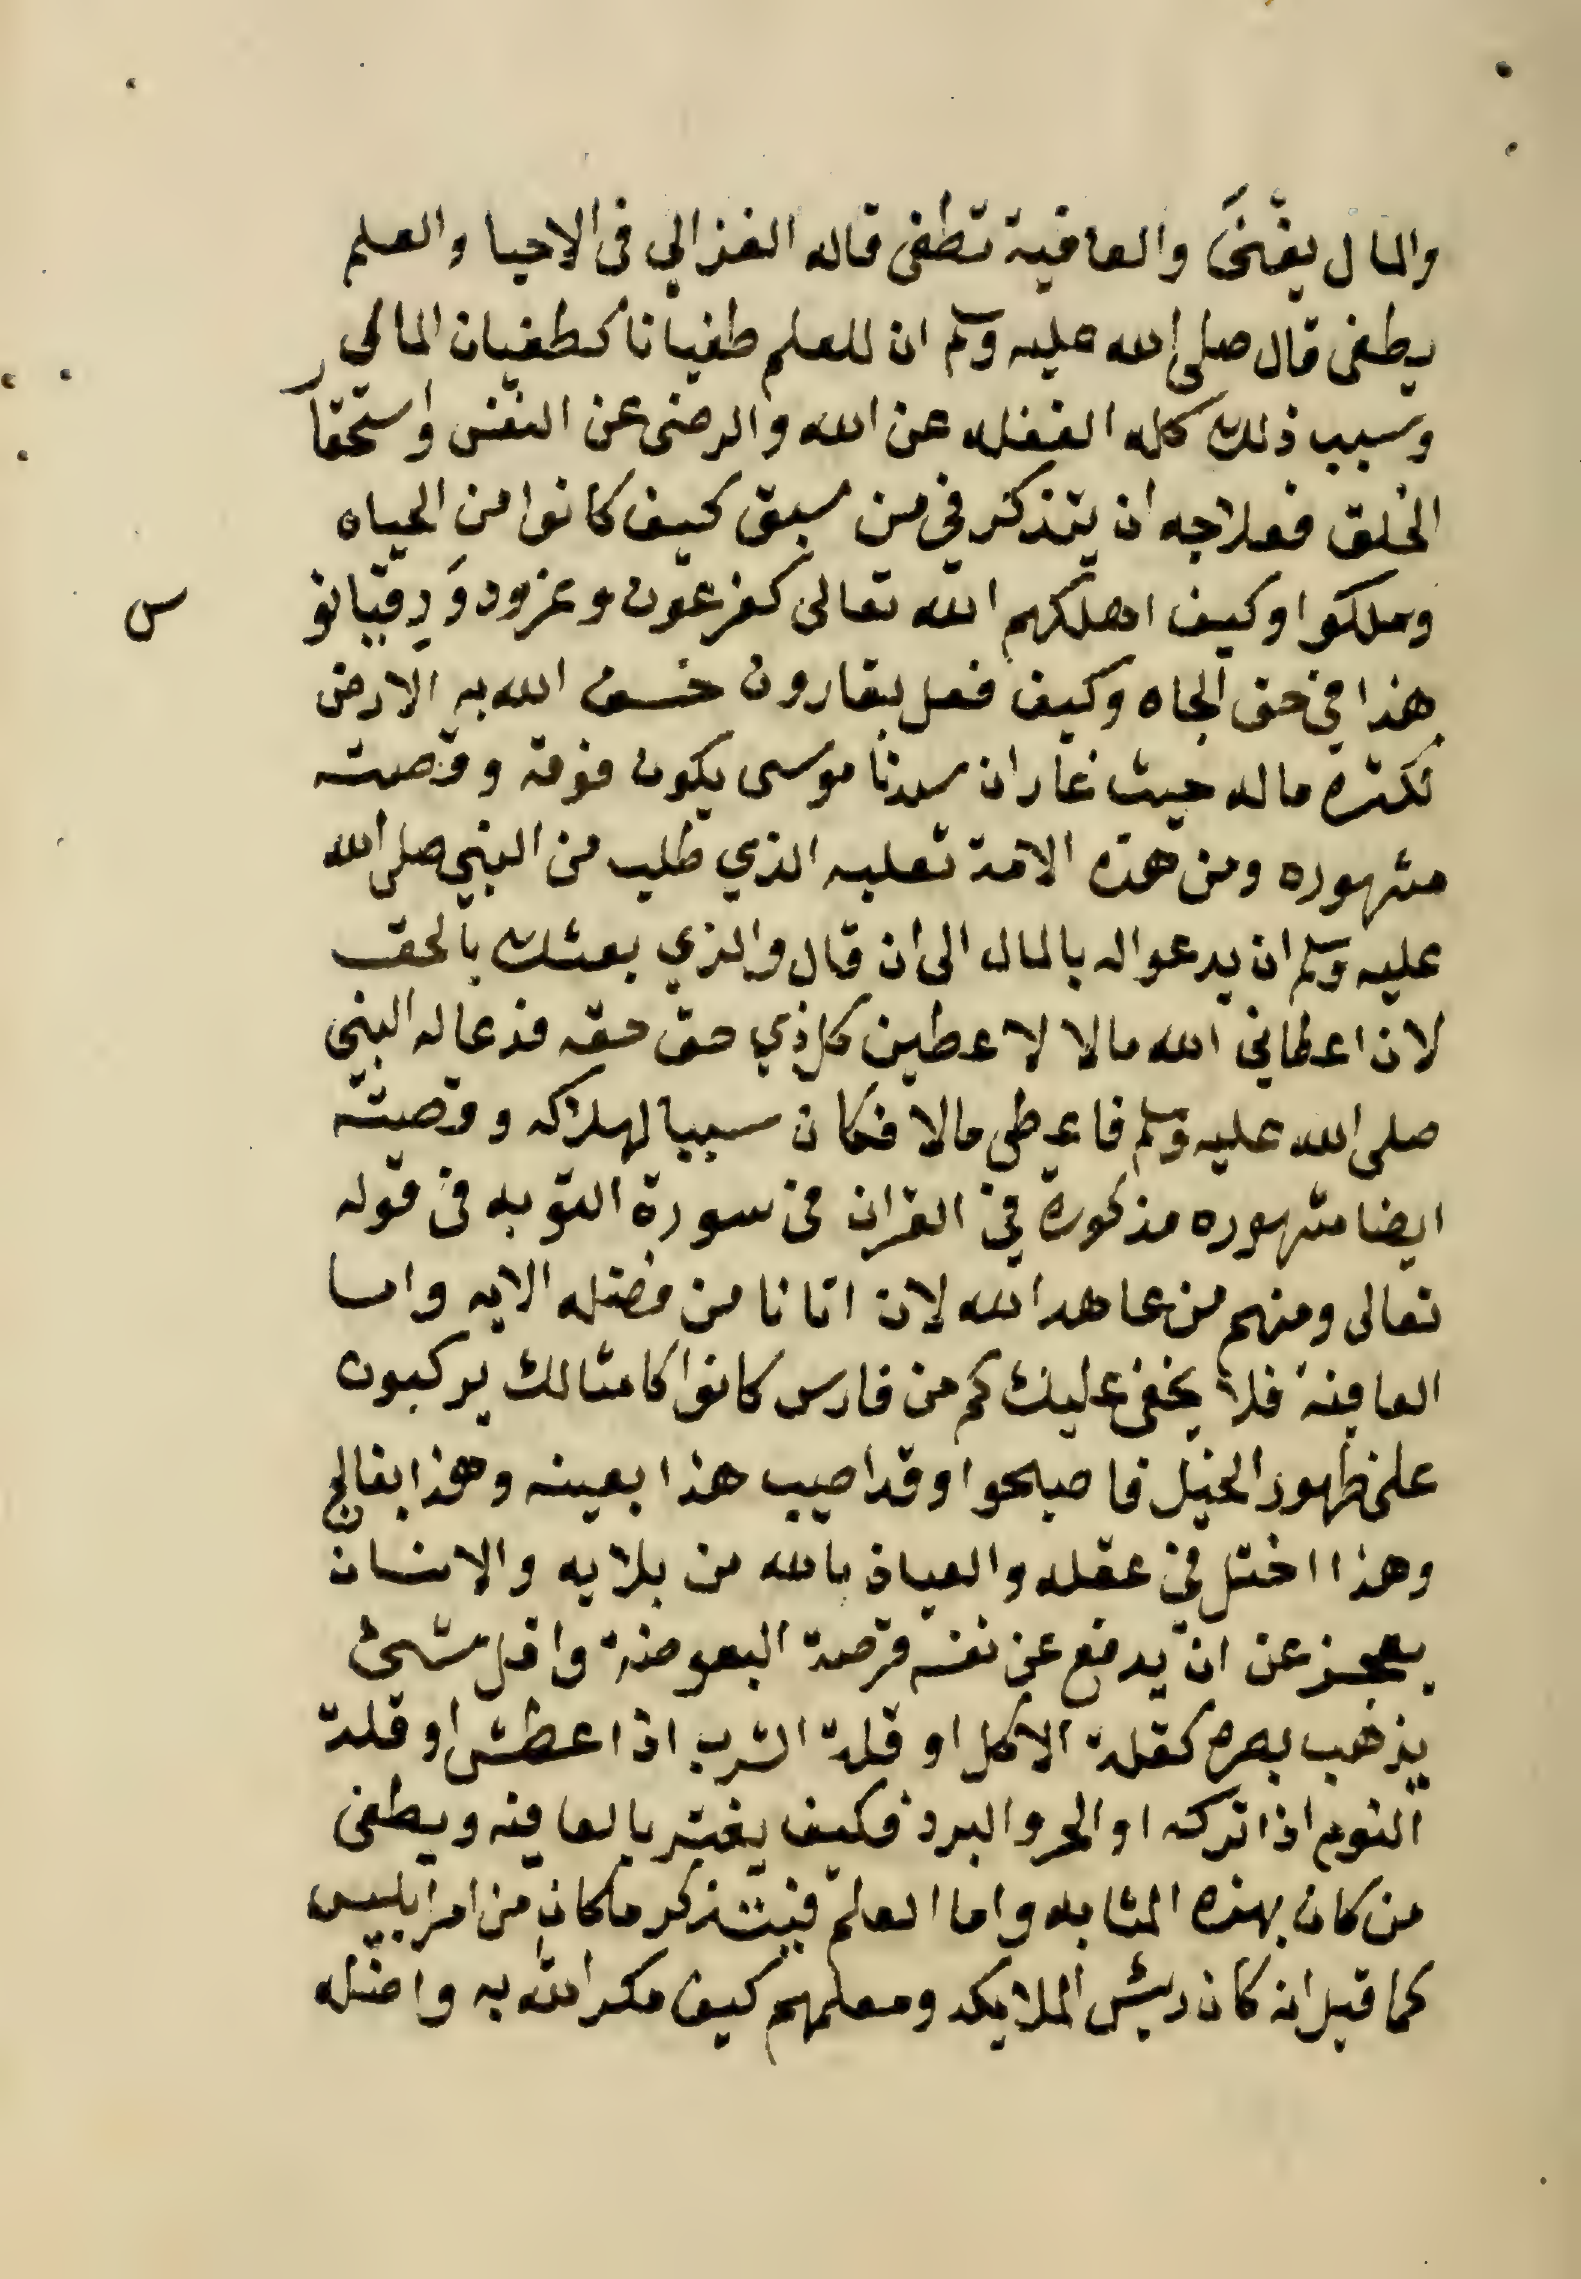 والمال يغنى والعافية تطغى قاله الغزالي فى الاحيا والعلم
يطغى قال صلى الله عليه وسلم ان للعلم طغيانا كطغيان المال
وسبب ذلك كله الغفله عن الله والرضى عن النفس واستحقار
الخلق فعلاجه ان يتذكر في من سبق كيف كانوا من الجاه
وملكوا وكيف اهلكهم الله تعالى كفرعون ونمرود وَدِقيانو
س
هذا في حق الجاه وكيف فعل بقارون خسف الله به الارض
لكثرة ماله حيث غار ان سيدنا موسى يكون فوقه وقصته
مشهوره ومن هذه الامة ثعلبه الذي طلب من النبي صلى الله
عليه وسلم ان يدعو اله بالمال الى ان قال والذي بعثك بالحق
لان اعطاني الله مالا لاعطين كل ذي حق حقه فدعا له النبي
صلى الله عليه وسلم فاعطى مالا فكان سببا لهلاكه وقصيته
ايضا مشهوره مذكورة في القران فى سورة التوبه فى قوله
تعالى ومنهم من عاهد الله لان اتانا من فضله الايه واما
العافية فلا يخفى عليك كم من فارس كانوا كامثالك يركبون
على ظهور الخيل فاصبحوا وقد اصيب هذا بعينه وهذا بفالج
وهذا اختل في عقله والعياذ بالله من بلايه والانسان
يعجز عن ان يدفع عن نفسه قرصة البعوضة واقل شئ
يذهب بصره كقلة الاكل او قلة الشرب اذا عطش او قلة
النوم اذا تركه او الحر والبرد فكيف يغتر بالعافيه ويطغى
من كان بهذه المثابه واما العلم فيتذكر ما كان من امر ابليس
كما قيل انه كان رئيس الملايكه ومعلمهم كيف مكر الله به واضله